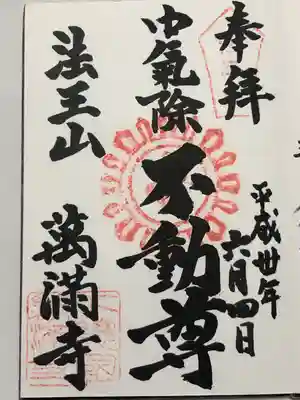 奉拝
平成卅年
六月四日
中氣除
不動尊
法王山
萬満寺